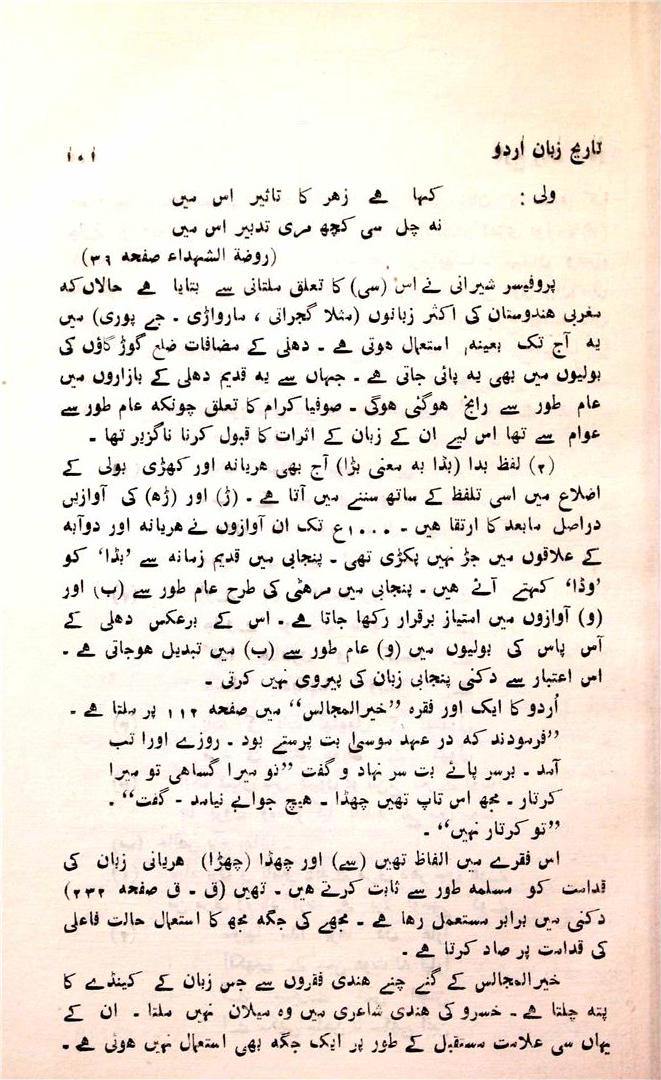 تاریخ زبان اردو
۱۰۱
ولی : کہا ہے زہر کا تاثیر اس میں
نہ چل سی کچھ مری تدبیر اس میں
(روضة الشہداء صفحہ ۳۶)
پروفیسر شیرانی نے اس (سی) کا تعلق ملتانی سے بتایا ہے حالاں کہ
مغربی ہندوستان کی اکثر زبانوں (مثلا گجراتی ، مارواڑی ۔ جے پوری) میں
یہ آج تک بعینہ, استعمال ہوتی ہے ۔ دہلی کے مضافات ضلع گوڑگاؤں کی
بولیوں میں بھی یہ پائی جاتی ہے ۔ جہاں سے یہ قدیم دہلی کے بازاروں میں
عام طور سے رائج ہوگئی ہوگی ۔ صوفیا کرام کا تعلق چونکہ عام طور سے
عوام سے تھا اس لیے ان کے زبان کے اثرات کا قبول کرنا ناگزیر تھا ۔
(۲) لفظ بدا (بڈا بہ معنی بڑا) آج بھی ہریانہ اور کھڑی بولی کے
اضلاع میں اسی تلفظ کے ساتھ سننے میں آتا ہے ۔ (ڑ) اور (ڑھ) کی آوازیں
دراصل مابعد کا ارتقا ہیں ۔ ۱۰۰۰ع تک ان آوازوں نے ہریانہ اور دوآبہ
کے علاقوں میں جڑ نہیں پکڑی تھی ۔ پنجابی میں قدیم زمانہ سے ’بڈا‘ کو
’وڈا‘ کہتے آئے ہیں ۔ پنجابی میں مرہٹی کی طرح عام طور سے (ب) اور
(و) آوازوں میں امتیاز برقرار رکھا جاتا ہے ۔ اس کے برعکس دہلی کے
آس پاس کی بولیوں میں (و) عام طور سے (ب) میں تبدیل ہوجاتی ہے ۔
اس اعتبار سے دکنی پنجابی زبان کی پیروی نہیں کرتی ۔
اُردو کا ایک اور فقرہ ’’خیرالمجالس‘‘ میں صفحہ ۱۱۲ پر ملتا ہے ۔
’’فرمودند کہ در عہد موسیٰ بت پرستے بود ۔ روزے اورا تب
آمد ۔ برسر پائے بت سر نہاد و گفت ’’تو میرا گساھی تو میرا
کرتار ۔ مجھ اس تاپ تھیں چھڈا ۔ ہیچ جوابے نیامد - گفت‘‘ ۔
’’تو کرتار نہیں‘‘ ۔
اس فقرے میں الفاظ تھیں (سے) اور چھڈا (چھڑا) ہریانی زبان کی
قدامت کو مسلمہ طور سے ثابت کرتے ہیں ۔ تھیں (ق ۔ ق صفحہ ۲۳۲)
دکنی میں برابر مستعمل رہا ہے ۔ مجھے کی جگہ مجھ کا استعمال حالت فاعلی
کی قدامت پر صاد کرتا ہے ۔
خیرالمجالس کے گنے چنے ہندی فقروں سے جس زبان کے کینڈے کا
پتہ چلتا ہے ۔ خسرو کی ہندی شاعری میں وہ میلان نہیں ملتا ۔ ان کے
یہاں سی علامت مستقبل کے طور پر ایک جگہ بھی استعمال نہیں ہوئی ہے ۔